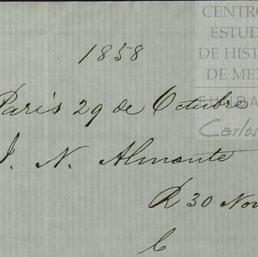 CENTRO
ESTUD
DE HIST
DE ME
FUNDA
Carlos
1858
Paris 29 de Octubre
J. N. Almonte
R 30 Nov
C